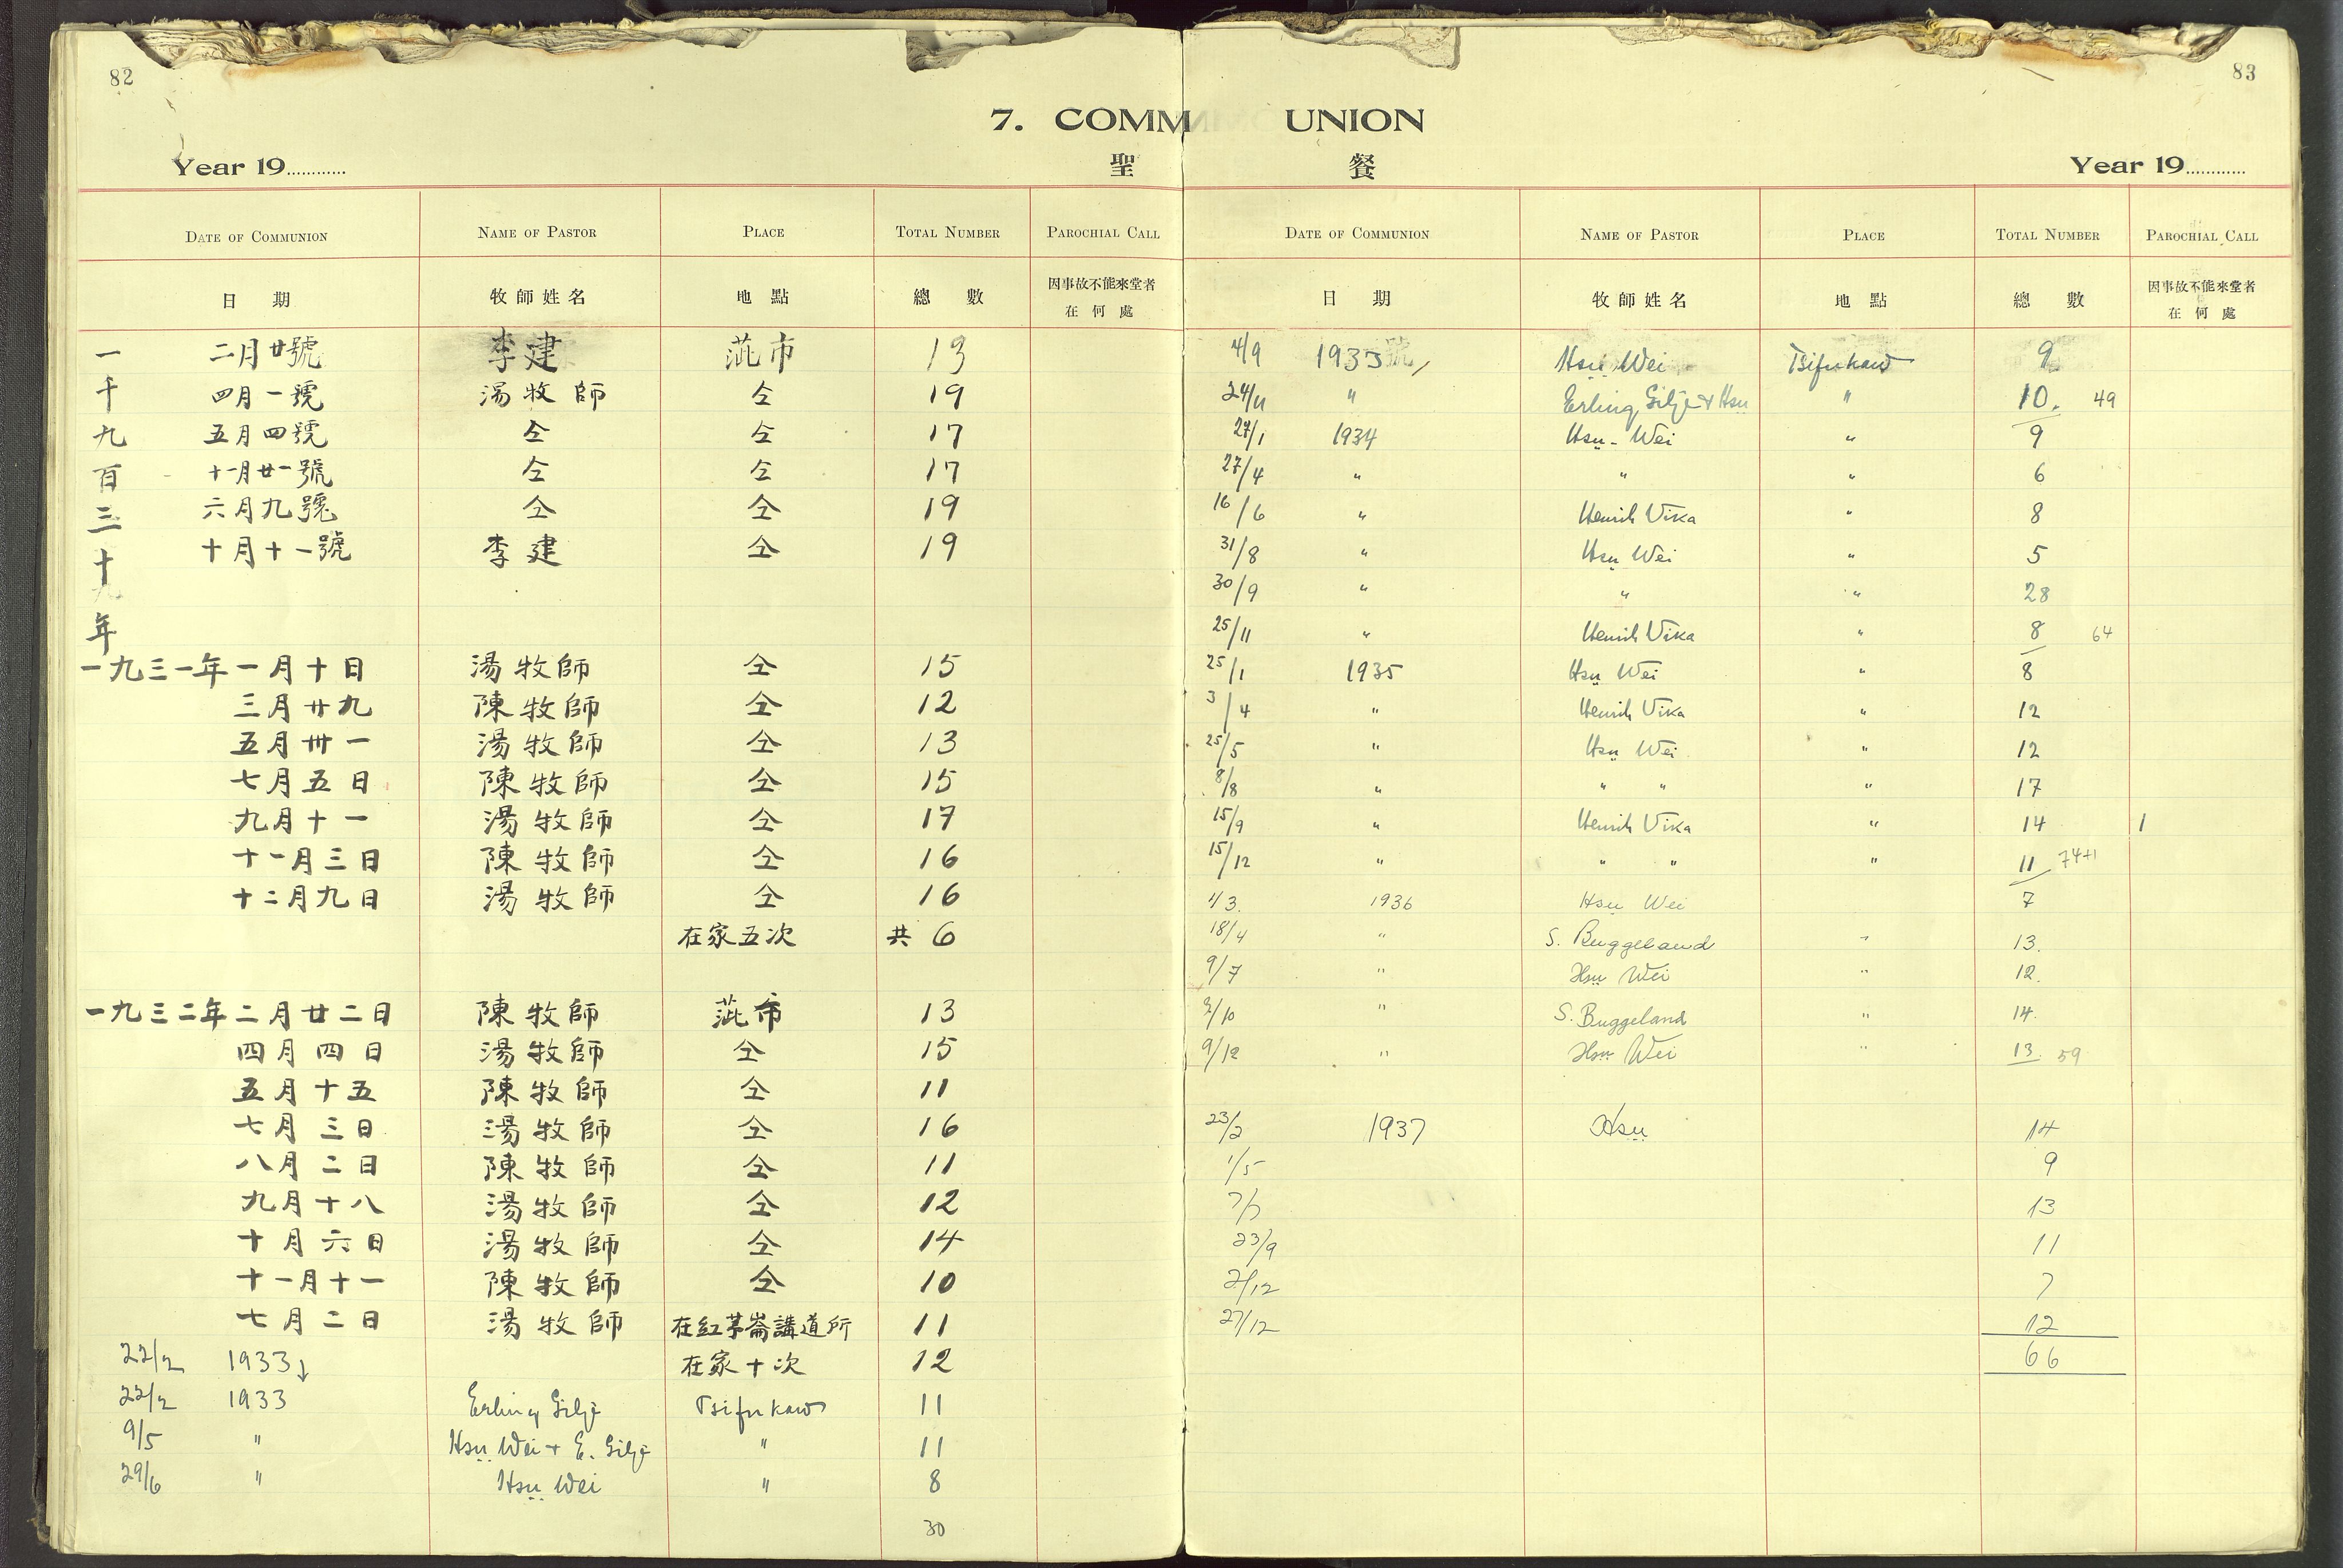 82
7. COMM
Year 19............
聖
DATE OF COMMUNION NAME OF PASTOR PLACE TOTAL NUMBER PAROCHIAL CALL
日 期 牧師姓名 地點 總數 因事故不能來堂者在何處
一千九百三十年
二月廿號 李建 茈市 13
四月一號 湯牧師 仝 19
五月四號 仝 仝 17
十一月廿一號 仝 仝 17
六月九號 仝 仝 19
十月十一號 李建 仝 19
一九三一年一月十日 湯牧師 仝 15
三月廿九 陳牧師 仝 12
五月卅一 湯牧師 仝 13
七月五日 陳牧師 仝 15
九月十一 湯牧師 仝 17
十一月三日 陳牧師 仝 16
十二月九日 湯牧師 仝 16
在家五次 共 6
一九三二年二月廿二日 陳牧師 茈市 13
四月四日 湯牧師 仝 15
五月十五 陳牧師 仝 11
七月三日 湯牧師 仝 16
八月二日 陳牧師 仝 11
九月十八 湯牧師 仝 12
十月六日 湯牧師 仝 14
十一月十一 陳牧師 仝 10
七月二日 湯牧師 在紅茅崙講道所 11
22/2 1933 在家十次 12
22/2 1933 Erling Gilje Tsifukaw 11
9/5 " Hsu Wei + E. Gilje " 11
29/6 " Hsu Wei " 8
30
83
UNION
餐
Year 19............
DATE OF COMMUNION NAME OF PASTOR PLACE TOTAL NUMBER PAROCHIAL CALL
日 期 牧師姓名 地點 總數 因事故不能來堂者在何處
4/9 1933 Hsu Wei Tsifukaw 9
24/11 " Erling Gilje + Hsu " 10. 49
27/1 1934 Hsu-Wei " 9
27/4 " " " 6
16/6 " Henrik Vika " 8
31/8 " Hsu Wei " 5
30/9 " " " 28
25/11 " Henrik Vika " 8 64
25/1 1935 Hsu Wei " 8
3/4 " Henrik Vika " 12
25/5 " Hsu Wei " 12
8/8 " " " " 17
15/9 " Henrik Vika " 14 1
15/12 " " " " 11 74+1
1/3. 1936 Hsu Wei 7
18/4 " S. Buggeland " 13.
9/7 " Hsu Wei " 12.
2/10 " S. Buggeland " 14.
9/12 " Hsu Wei " 13. 59
23/2 1937 Hsu 14
1/5 9
7/7 13
23/9 11
2/12 7
27/12 12
66